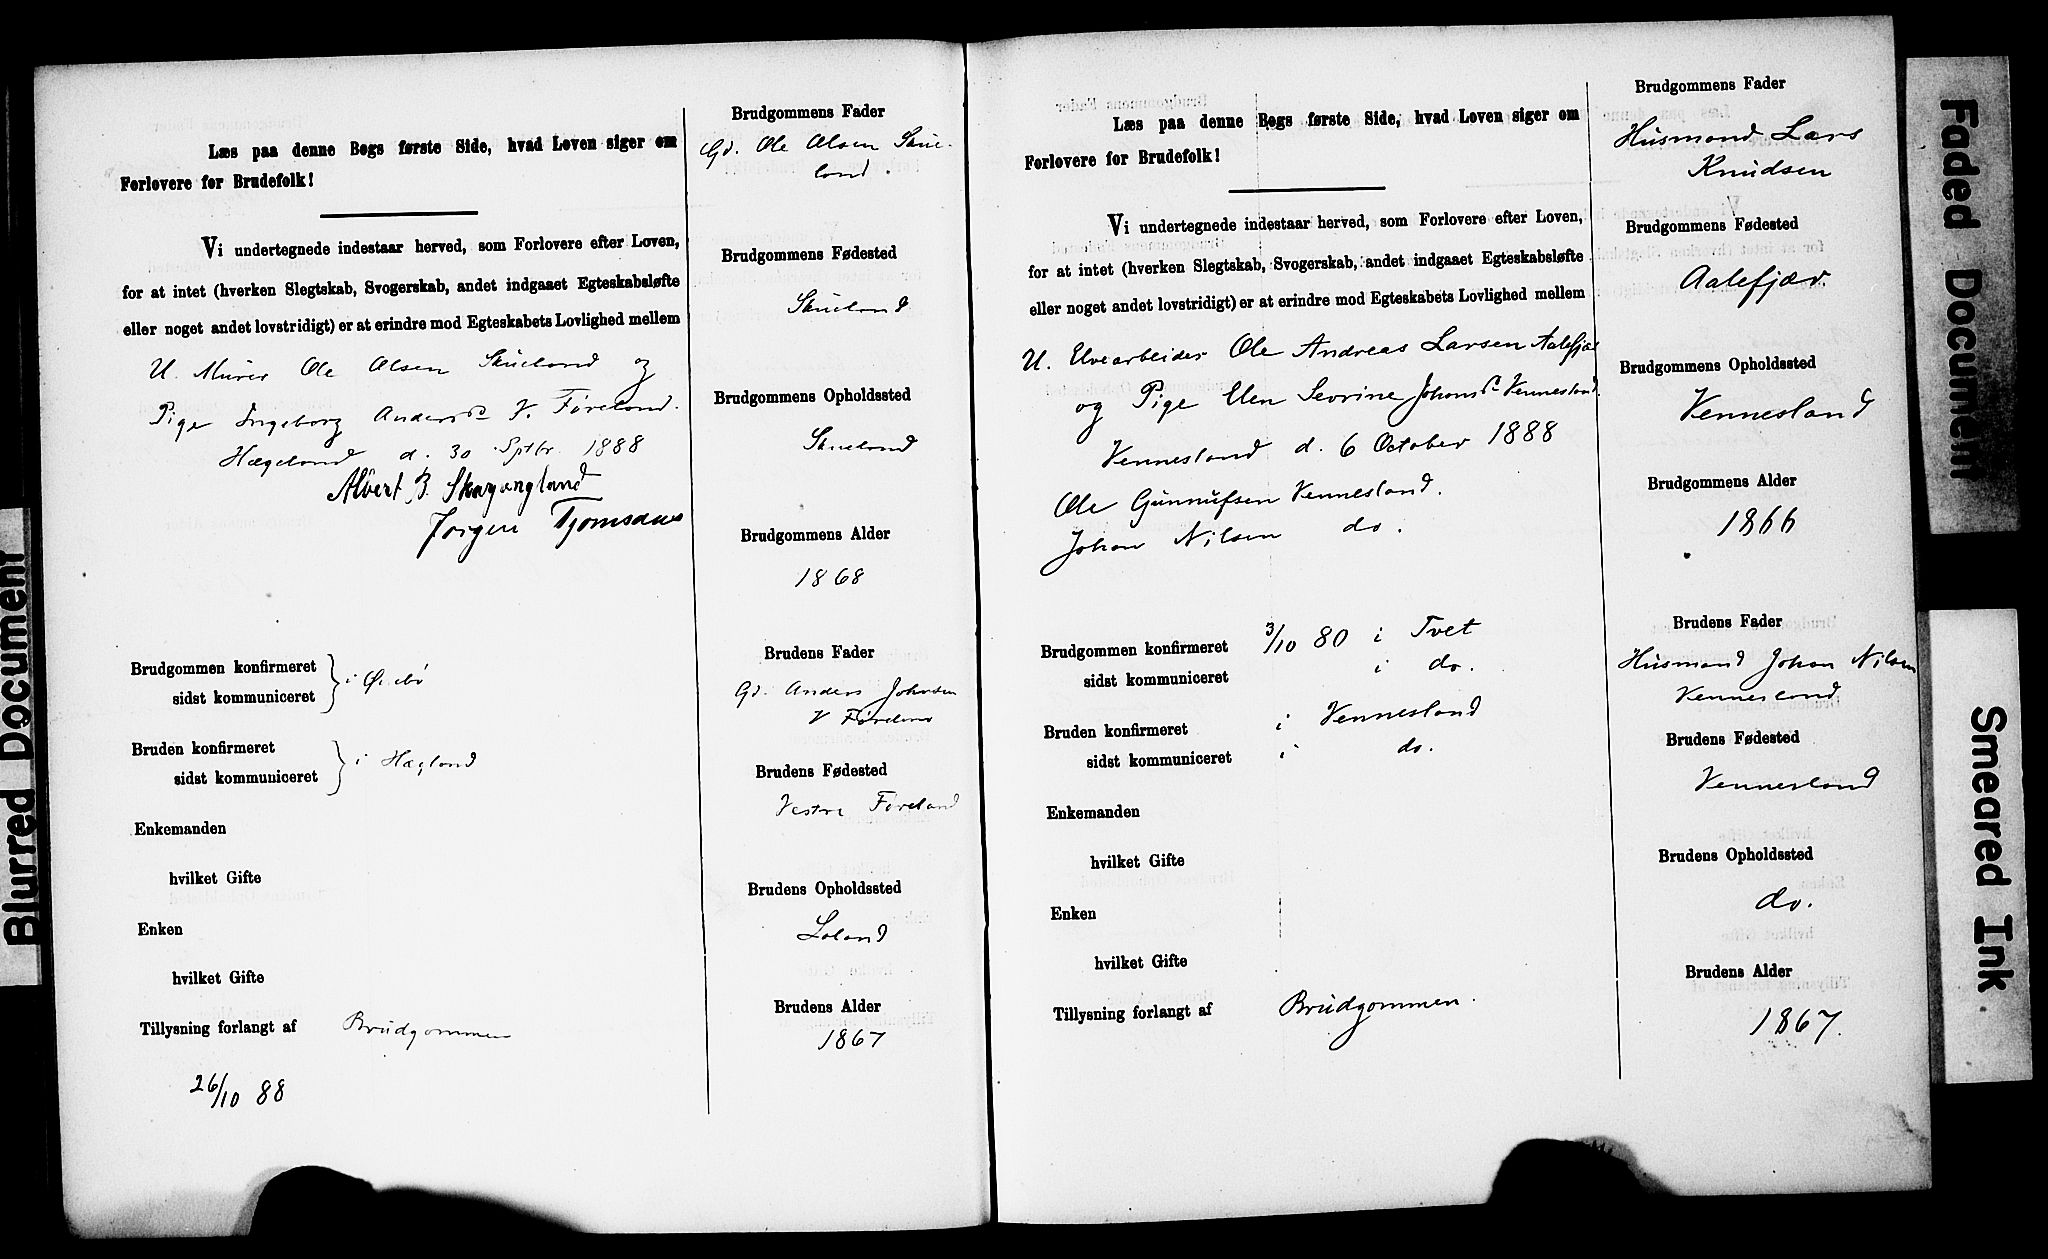 Læs paa denne Bogs første Side, hvad Loven siger om
Forlovere for Brudefolk!
Vi undertegnede indestaar herved, som Forlovere efter Loven,
for at intet (hverken Slegtskab, Svogerskab, andet indgaaet Egteskabsløfte
eller noget andet lovstridigt) er at erindre mod Egteskabets Lovlighed mellem
U. Murer Ole Olsen Skueland og
Pige Ingeborg Andersd. V. Føreland.
Hægeland d. 30 Sptbr. 1888
Albert B. Skarpengland
Jørgen Tjomsaas
Brudgommen konfirmeret
sidst kommuniceret
i Øvrebø
Bruden konfirmeret
sidst kommuniceret
i Hægland
Enkemanden
hvilket Gifte
Enken
hvilket Gifte
Tillysning forlangt af Brudgommen
26/10 88
Brudgommens Fader
Gd. Ole Olsen Skue-
land.
Brudgommens Fødested
Skueland
Brudgommens Opholdssted
Skueland
Brudgommens Alder
1868
Brudens Fader
Gd. Anders Johnsen
V Føreland
Brudens Fødested
Vestre Føreland
Brudens Opholdssted
Loland
Brudens Alder
1867
Læs paa denne Bogs første Side, hvad Loven siger om
Forlovere for Brudefolk!
Vi undertegnede indestaar herved, som Forlovere efter Loven,
for at intet (hverken Slegtskab, Svogerskab, andet indgaaet Egteskabsløfte
eller noget andet lovstridigt) er at erindre mod Egteskabets Lovlighed mellem
U. Elvearbeider Ole Andreas Larsen Aalefjær
og Pige Elen Sevrine Johansd. Vennesland.
Vennesland d. 6 October 1888
Ole Gunnufsen Vennesland.
Johan Nilsen do.
Brudgommen konfirmeret 3/10 80 i Tvet
sidst kommuniceret i do.
Bruden konfirmeret i Vennesland
sidst kommuniceret i do.
Enkemanden
hvilket Gifte
Enken
hvilket Gifte
Tillysning forlangt af Brudgommen.
Brudgommens Fader
Husmand Lars
Knudsen
Brudgommens Fødested
Aalefjær.
Brudgommens Opholdssted
Vennesland
Brudgommens Alder
1866
Brudens Fader
Husmand Johan Nilsen
Vennesland
Brudens Fødested
Vennesland
Brudens Opholdssted
do.
Brudens Alder
1867.
Blurred Document
Faded Document
Smeared Ink